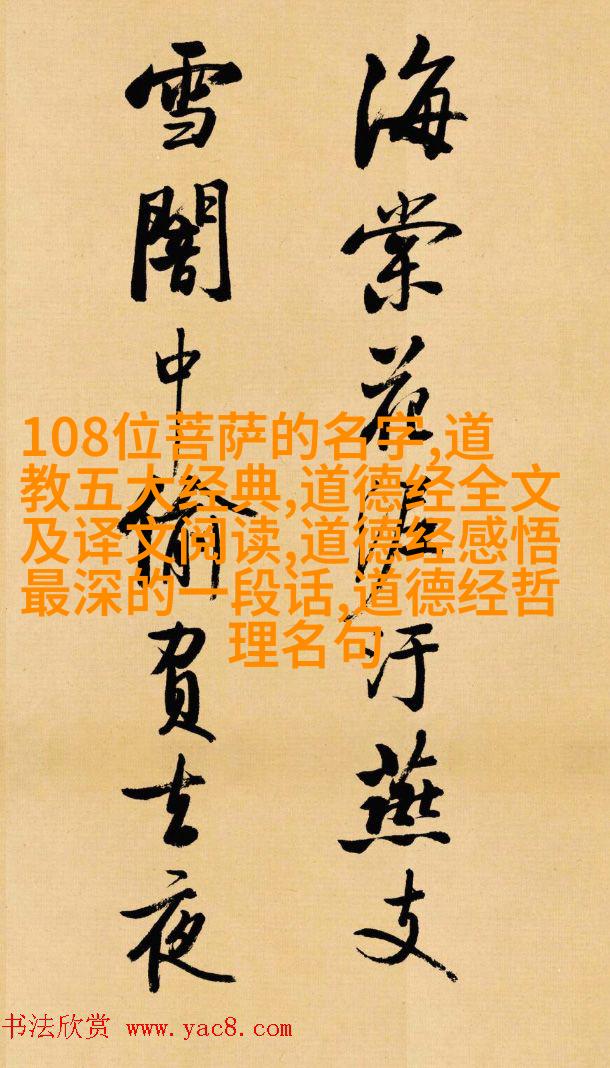 海棠花泥汙燕支
雪闇中偷負去夜
108位菩萨的名字,道
教五大经典,道德经全文
及译文阅读,道德经感悟
最深的一段话,道德经哲
理名句
书法欣赏 www.yac8.com